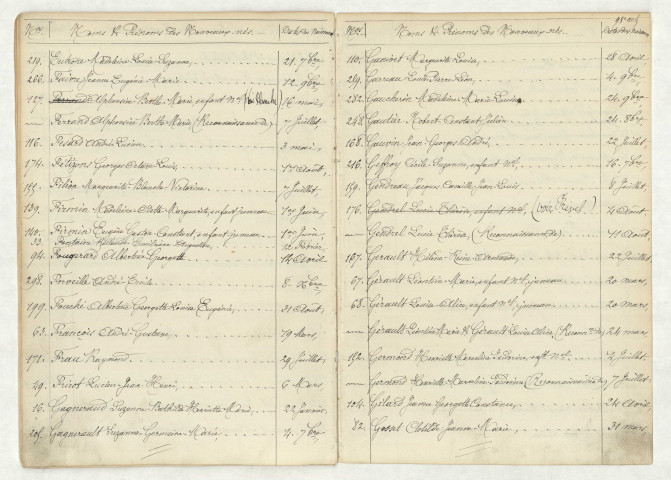 Nos Noms & Prénoms des Nouveaux-nés. Date des Naissances
219. Madeleine Louise Suzanne, 21. 7bre
266. Faivre Jeanne Eugénie Marie 12. 9bre
127. Alphonsine Berthe Marie, enfant nel 16 mai,
— Alphonsine Berthe Marie (Reconnaissance) 7 Juillet,
116. André Lucien 3 mai,
174. Georges Octave Louis, 1er Août,
155. Marguerite Blanche Victorine 7 Juillet,
139. Firmin Madeleine Marguerite, enfant jumeau 1er Juin,
140. Firmin Eugène Gaston Constant, enfant jumeau 1er Juin,
33. Fontaine 12 Février
94. Fougerard Albertine Georgette 14 Avril
248. Forville André Émile 8. 8bre
199. Fouché Albertine Georgette Louise Eugénie, 31 Août,
63. François André Gustave, 19 Mars,
171. Frau Raymond 29 Juillet,
49. Fricot Lucien Jean Henri, 6 Mars,
16. Gagneraud Suzanne Berthe Henriette Marie, 22 Janvier,
205. Gagnerault Suzanne Germaine Marie, 4. 7bre
Nos Noms & Prénoms des Nouveaux-nés. Date des Naissances
110. Marguerite Louise, 28 Avril,
259. Garreau Louis Pierre Léon, 4. 9bre
282. Gaucherin Madeleine Marie Louise 24. 9bre
248. Gautier Robert Constant Julien 24. 8bre
168. Gauvin Jean Georges André, 22 Juillet,
216. Geffroy Cécile Suzanne, enfant nel. 16. 7bre
159. Gendreau Jacques Camille Jean Louis. 8 Juillet,
176. Gendrel Louise enfant nel, (voir ) 4 Août,
— Gendrel Louise (Reconnaissance) 11 Août,
167. Gérault Hélène 22 Juillet
67. Gérault Léontine Marie, enfant nel, jumeau 20 mars,
68. Gérault Louise Alice, enfant nel, jumeau 20 mars,
— Gérault Léontine Marie & Gérault Louise Alice, (Reconn.ce) 24 mars,
152. Germond Henriette 4 Juillet,
— Germond Henriette (Reconnaissance) 7 Juillet,
104. Gilard Jeanne Georgette Constance, 24 Avril,
82. Gosset Clotilde Jeanne Marie, 31 mars,